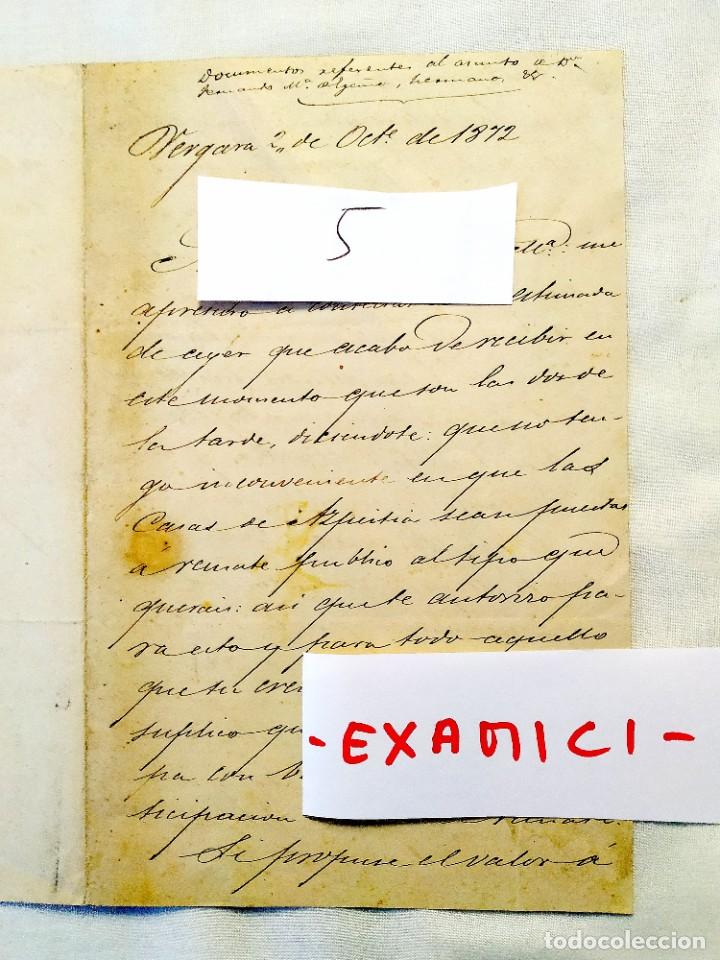 Documentos referentes al asunto de Dn
Fernando Mª
hermano, &.
Vergara 2,, de Octe. de 1872
5
Mª: me
apresuro a contestar estimada
de ayer que acabo de recibir en
este momento que son las dos de
la tarde, diciendote: que no ten-
go inconveniente en que las
Casas de Azpeitia sean puestas
á remate publico al tipo que
querais: asi que te autorizo pa-
ra esto y para todo aquello
que tu
suplico
- EXAMICI -
pa con
ticipacion
Si propuse el valor á
todocoleccion.net